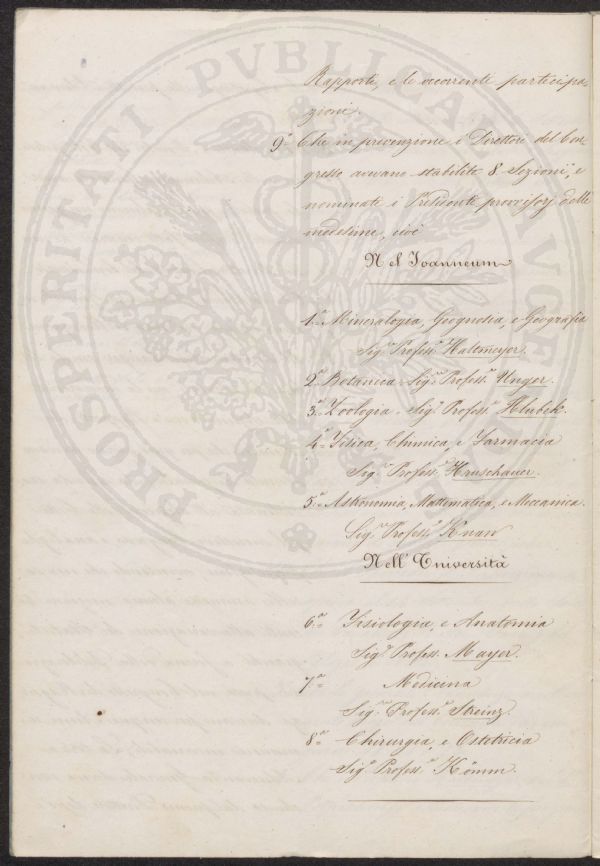 Rapporti, e le occorrenti partecipa-
zioni.
9.º Che in prevenzione i Direttori del Con-
gresso avevano stabilite 8 Sezioni, e
nominati i Presidenti provvisorj delle
medesime, cioè
Nel Joanneum
1.ª Mineralogia, Geognosia, e Geografia
Sig.r Profess.r Haltmeyer.
2.ª Botanica - Sig.r Profess.r Unger.
3.ª Zoologia - Sig.r Profess.r Hlubek.
4.ª Fisica, Chimica, e Farmacia
Sig.r Profess.r Hruschauer.
5.ª Astronomia, Mattematica, e Meccanica.
Sig.r Profess.r Knar
Nell' Università
6.ª Fisiologia, e Anatomia
Sig.r Profess.r Mayer.
7.ª Medicina
Sig.r Profess.r Streinz.
8.ª Chirurgia, e Ostetricia
Sig.r Profess.r Kömm.
PROSPERITATI PVBLICAE AVGE